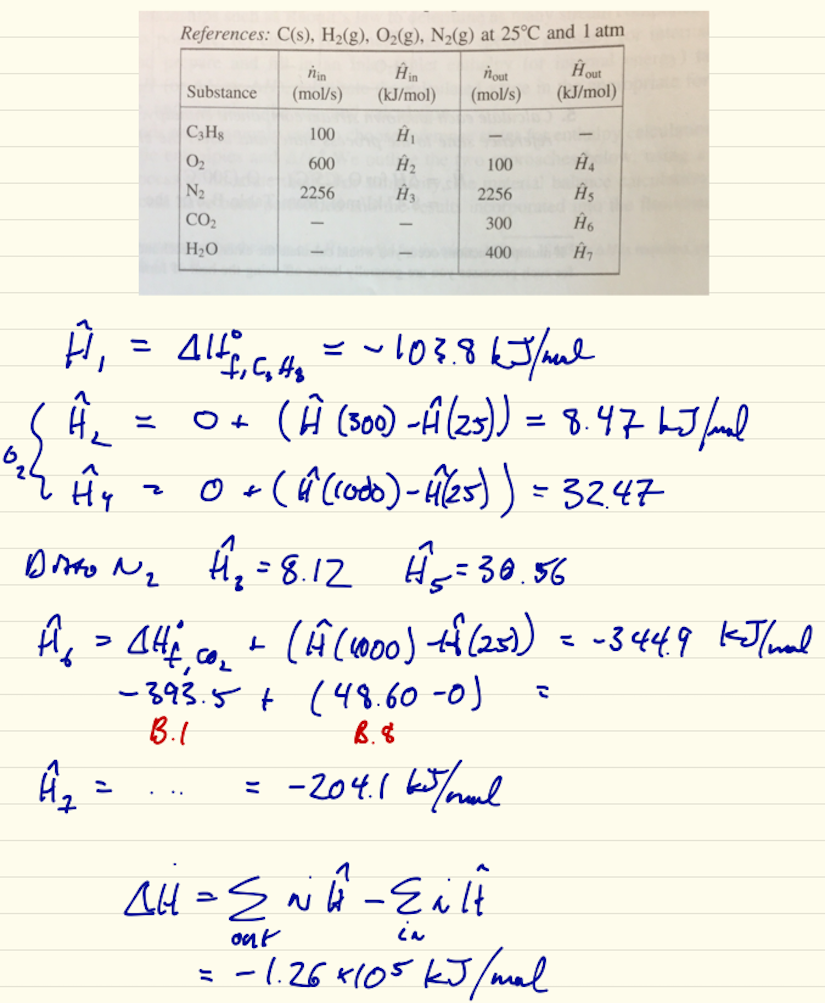 References: C(s), H₂(g), O₂(g), N₂(g) at 25°C and 1 atm
Substance ṅin (mol/s) Ĥin (kJ/mol) ṅout (mol/s) Ĥout (kJ/mol)
C₃H₈ 100 Ĥ₁ — —
O₂ 600 Ĥ₂ 100 Ĥ₄
N₂ 2256 Ĥ₃ 2256 Ĥ₅
CO₂ — — 300 Ĥ₆
H₂O — — 400 Ĥ₇
Ĥ₁ = ΔH°f, C₃H₈ = -103.8 kJ/mol
O₂ { Ĥ₂ = 0 + (Ĥ(300) - Ĥ(25)) = 8.47 kJ/mol
Ĥ₄ = 0 + (Ĥ(1000) - Ĥ(25)) = 32.47
Ditto N₂ Ĥ₃ = 8.12 Ĥ₅ = 30.56
Ĥ₆ = ΔH°f, CO₂ + (Ĥ(1000) - Ĥ(25)) = -344.9 kJ/mol
-393.5 + (48.60 - 0) =
B.1 B.8
Ĥ₇ = ... = -204.1 kJ/mol
ΔḢ = Σout ṅĤ - Σin ṅĤ
= -1.26 × 10⁵ kJ/mol